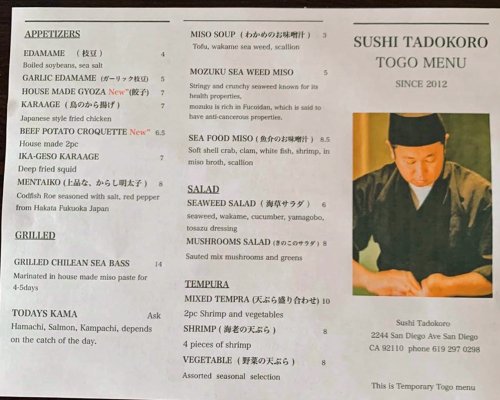 APPETIZERS
EDAMAME （枝豆） 4
Boiled soybeans, sea salt
GARLIC EDAMAME (ガーリック枝豆) 5
HOUSE MADE GYOZA New"(餃子) 7
KARAAGE ( 鳥のから揚げ ) 7
Japanese style fried chicken
BEEF POTATO CROQUETTE New" 6.5
House made 2pc
IKA-GESO KARAAGE 7
Deep fried squid
MENTAIKO (上品な、からし明太子 ) 8
Codfish Roe seasoned with salt, red pepper
from Hakata Fukuoka Japan
GRILLED
GRILLED CHILEAN SEA BASS 14
Marinated in house made miso paste for
4-5days
TODAYS KAMA Ask
Hamachi, Salmon, Kampachi, depends
on the catch of the day.
MISO SOUP ( わかめのお味噌汁 ) 3
Tofu, wakame sea weed, scallion
MOZUKU SEA WEED MISO 5
Stringy and crunchy seaweed known for its
health properties,
mozuku is rich in Fucoidan, which is said to
have anti-cancerous properties.
SEA FOOD MISO ( 魚介のお味噌汁 ) 8.5
Soft shell crab, clam, white fish, shrimp, in
miso broth, scallion
SALAD
SEAWEED SALAD ( 海草サラダ ) 6
seaweed, wakame, cucumber, yamagobo,
tosazu dressing
MUSHROOMS SALAD (きのこのサラダ ) 8
Sauted mix mushrooms and greens
TEMPURA
MIXED TEMPRA (天ぷら盛り合わせ) 10
2pc Shrimp and vegetables
SHRIMP ( 海老の天ぷら ) 8
4 pieces of shrimp
VEGETABLE ( 野菜の天ぷら ) 8
Assorted seasonal selection
SUSHI TADOKORO
TOGO MENU
SINCE 2012
Sushi Tadokoro
2244 San Diego Ave San Diego
CA 92110 phone 619 297 0298
This is Temporary Togo menu